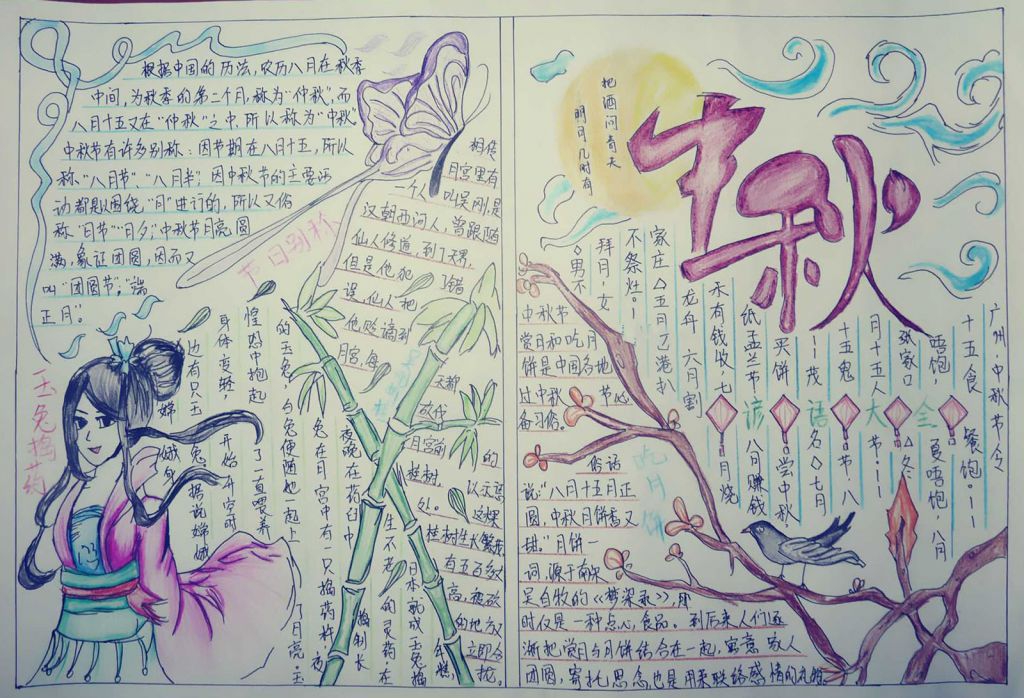 根据中国的历法，农历八月在秋季
中间，为秋季的第二个月，称为“仲秋”，而
八月十五又在“仲秋”之中，所以称为“中秋”。
中秋节有许多别称：因节期在八月十五，所以
称“八月节”、“八月半”；因中秋节的主要活
动都是以围绕“月”进行的，所以又俗
称“月节”“月夕”；中秋节月亮圆
满，象征团圆，因而又
叫“团圆节”，“端
正月”。
节日别称
相传
月宫里有
一个人
叫吴刚，是
汉朝西河人，曾跟随
仙人修道，到了天界，
但是他犯了错
误，仙人把
他贬谪到
月宫，每
天都
砍伐
月宫前的
桂树，
以示惩
处。这棵
桂树生长繁茂
有五百多丈
高，
的地方又
立即合
拢。
玉兔捣药
嫦娥
身体变轻，开始升空时
惶恐中抱起了一直喂养
的玉兔，白兔便随她一起上
了月亮。玉
兔在月宫中有一只捣药杵，
夜晚在药臼中
捣制长
生不老的灵药，
中秋
把酒问青天
明月几时有
广州·中秋节令
十五食餐饱
唔饱，
夏唔饱，八月
张家口
冬
月十五人大节
十五鬼节，八
茂名◇七月
买饼
尝中秋
纸孟兰节
八月赚钱
禾有钱收，七月烧
龙舟
六月割
家庄◇五月
不祭灶。
拜月，女
◇男不
谚语大全
吃月饼
中秋节
赏月和吃月
饼是中国各地
过中秋节必
备习俗。
俗话
说：“八月十五月正
圆，中秋月饼香又
甜。”月饼一
词，源于南宋
吴自牧的《梦梁录》，那
时仅是一种点心食品。到后来人们逐
渐把赏月与月饼结合在一起，寓意家人
团圆，寄托思念，也是用来联络感情的礼物。